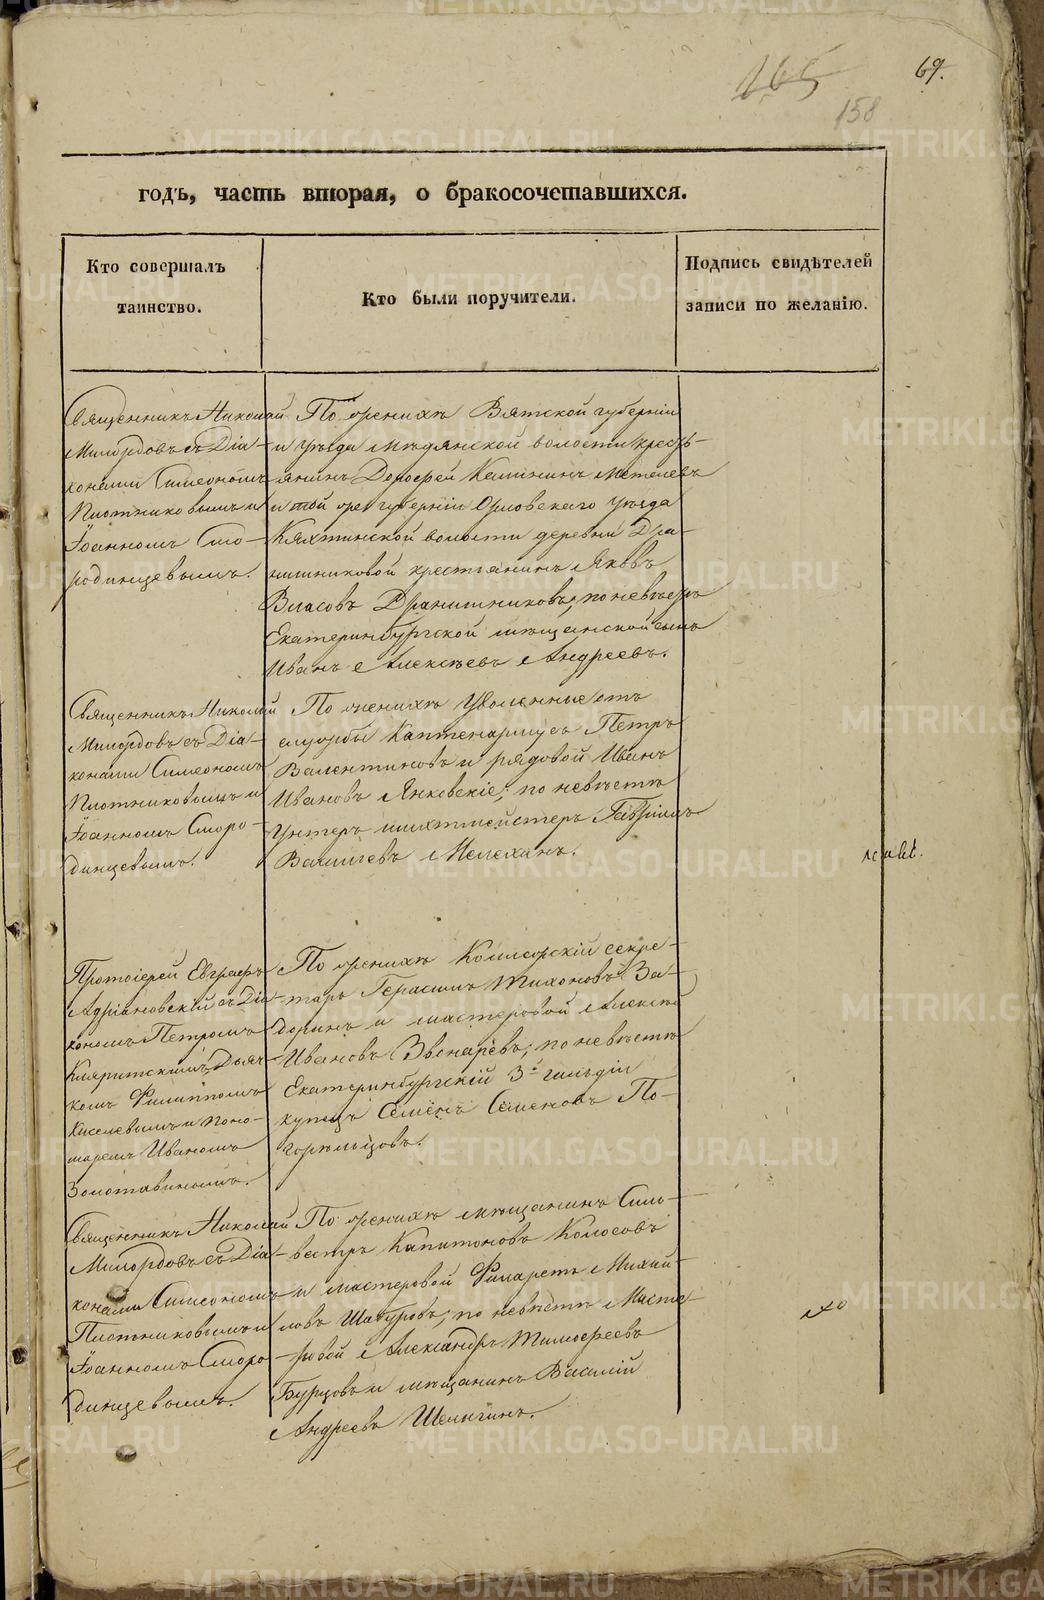 69.
165
158
годъ, часть вторая, о бракосочетавшихся.
Кто совершалъ
таинство.
Кто были поручители.
Подпись свидѣтелей
записи по желанію.
Священникъ Николай
Милордовъ съ Діа-
конами Симеономъ
Плотниковымъ и
Іоанномъ Смо-
родинцевымъ.
По женихѣ Вятской губерніи
и уѣзда Мѣдянской волости кресть-
янинъ Дорофей Калининъ Метелевъ
и той же губерніи Орловскаго уѣзда
волости деревни Дра-
нишниковой крестьянинъ Яковъ
Власовъ Дранишниковъ; по невѣстѣ
Екатеринбургской мѣщанской сынъ
Иванъ Алексѣевъ Андреевъ.
Священникъ Николай
Милордовъ съ Діа-
конами Симеономъ
Плотниковымъ и
Іоанномъ Сморо-
динцевымъ.
По женихѣ Уволенные отъ
службы Каптенармусъ Петръ
Валентиновъ и рядовой Иванъ
Ивановъ Янковскіе; по невѣстѣ
Унтеръ шихтмейстеръ Гавріилъ
Мелехинъ.
Протоіерей Евграфъ
Адріановскій съ Діа-
кономъ Петромъ
Дьяч-
комъ Филиппомъ
Киселевымъ и поно-
маремъ Иваномъ
Золотавинымъ.
По женихѣ Коллежскій секре-
тарь Герасимъ Тихоновъ За-
доринъ и мастеровой Алексѣй
Ивановъ Звонарёвъ; по невѣстѣ
Екатеринбургскій 3й гильдіи
купецъ Семёнъ Семеновъ По-
горѣльцовъ.
Священникъ Николай
Милордовъ съ Діа-
конами Симеономъ
Плотниковымъ и
Іоанномъ Сморо-
динцевымъ.
По женихѣ мѣщанинъ Силь-
вестръ Капитоновъ Колосовъ
и мастеровой Филаретъ Михай-
ловъ Шатуровъ; по невѣстѣ Масте-
ровой Александръ Тимофеевъ
Бурцовъ и мѣщанинъ Василій
Андреевъ Шелягинъ.
METRIKI.GASO-URAL.RU